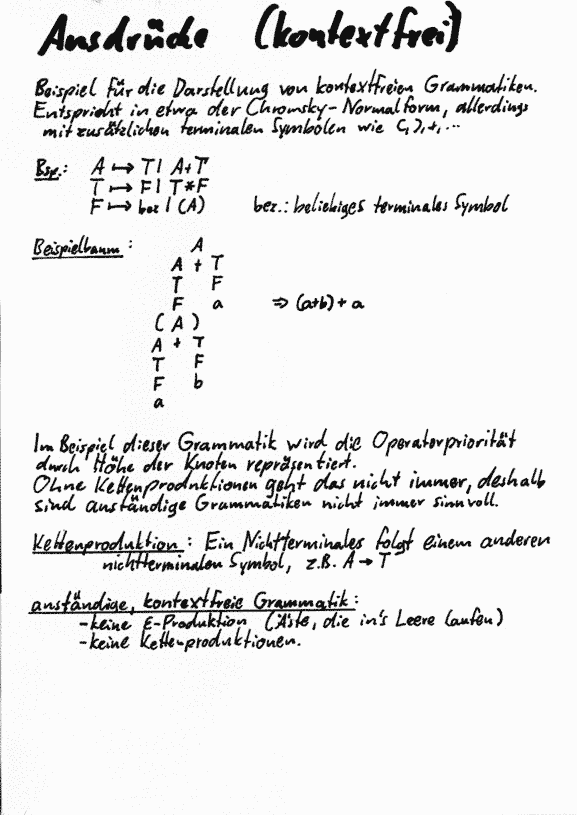 Ausdrücke (kontextfrei)
Beispiel für die Darstellung von kontextfreien Grammatiken.
Entspricht in etwa der Chromsky-Normalform, allerdings
mit zusätzlichen terminalen Symbolen wie (,),+,...
Bsp.: A ↦ T | A+T
T ↦ F | T*F
F ↦ bez | (A) bez.: beliebiges terminales Symbol
Beispielbaum: A
A + T
T F
F a ⇒ (a+b) + a
( A )
A + T
T F
F b
a
Im Beispiel dieser Grammatik wird die Operatorpriorität
durch Höhe der Knoten repräsentiert.
Ohne Kettenproduktionen geht das nicht immer, deshalb
sind anständige Grammatiken nicht immer sinnvoll.
Kettenproduktion: Ein Nichtterminales folgt einem anderen
nichtterminalen Symbol, z.B. A → T
anständige, kontextfreie Grammatik:
-keine E-Produktion (Äste, die in's Leere laufen)
-keine Kettenproduktionen.